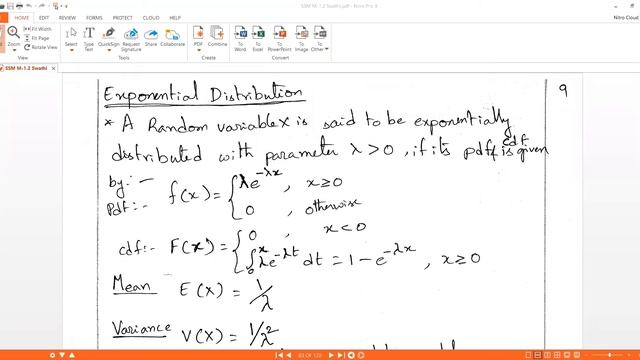 SSM M-1.2 Swathi.pdf - Nitro Pro 8
HOME PRODUCT CLOUD HELP
Nitro Cloud
Zoom
Fit Width
Fit Page
Rotate View
Select Type Text QuickSign Request Signature Share Collaborate PDF Combine To Word To Excel To PowerPoint To Image To Other
SSM M-1.2 Swathi
Exponential Distribution 9
* A Random variable X is said to be exponentially
distributed with parameter λ>0, if its pdf & cdf is given
by:-
Pdf:- f(x) = { λe^{-λx}, x≥0
0, otherwise
cdf:- F(x) = { 0, x<0
∫_0^x λe^{-λt} dt = 1-e^{-λx}, x≥0
Mean E(X) = 1/λ
Variance V(X) = 1/λ²